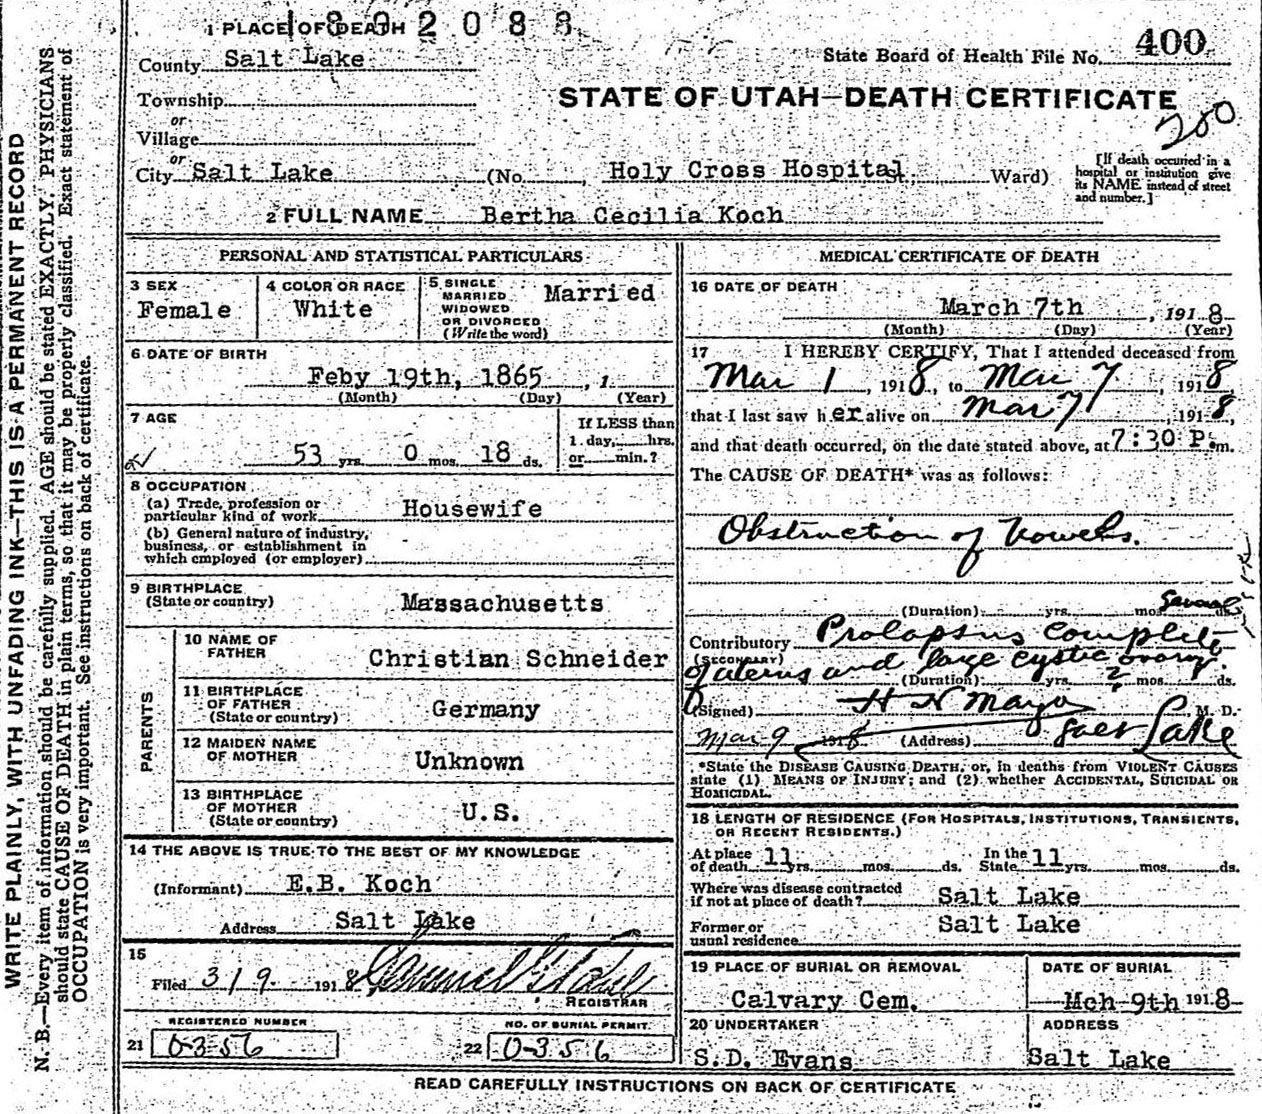 1892088
1 PLACE OF DEATH
State Board of Health File No. 400
County Salt Lake
STATE OF UTAH—DEATH CERTIFICATE
Township
200
or
Village
or
City Salt Lake (No. Holy Cross Hospital St., Ward)
[If death occurred in a
hospital or institution give
its NAME instead of street
and number.]
2 FULL NAME Bertha Cecilia Koch
PERSONAL AND STATISTICAL PARTICULARS
3 SEX
Female
4 COLOR OR RACE
White
5 SINGLE
MARRIED
WIDOWED
OR DIVORCED
(Write the word)
Married
6 DATE OF BIRTH
Feby 19th, 1865, 1
(Month) (Day) (Year)
7 AGE
53 yrs. 0 mos. 18 ds.
If LESS than
1 day, hrs.
or min.?
8 OCCUPATION
(a) Trade, profession or
particular kind of work Housewife
(b) General nature of industry,
business, or establishment in
which employed (or employer)
9 BIRTHPLACE
(State or country) Massachusetts
PARENTS
10 NAME OF
FATHER Christian Schneider
11 BIRTHPLACE
OF FATHER
(State or country) Germany
12 MAIDEN NAME
OF MOTHER Unknown
13 BIRTHPLACE
OF MOTHER
(State or country) U.S.
14 THE ABOVE IS TRUE TO THE BEST OF MY KNOWLEDGE
(Informant) E.B. Koch
Address Salt Lake
15
Filed 3/9 1918
REGISTRAR
REGISTERED NUMBER
21 0356
NO. OF BURIAL PERMIT
22 0-356
MEDICAL CERTIFICATE OF DEATH
16 DATE OF DEATH
March 7th, 1918
(Month) (Day) (Year)
17 I HEREBY CERTIFY, That I attended deceased from
Mar 1, 1918, to Mar 7, 1918,
that I last saw her alive on Mar 7, 1918,
and that death occurred, on the date stated above, at 7:30 P.m.
The CAUSE OF DEATH* was as follows:
Obstruction of bowels.
(Duration) yrs. mos. Several ds.
Contributory Prolapsus complete
(SECONDARY)
of uterus and large cystic ovary.
(Duration) yrs. 2 mos. ds.
(Signed) H N Mayo M. D.
Mar 9 1918 (Address) Salt Lake
*State the DISEASE CAUSING DEATH, or, in deaths from VIOLENT CAUSES
state (1) MEANS OF INJURY; and (2) whether ACCIDENTAL, SUICIDAL OR
HOMICIDAL.
18 LENGTH OF RESIDENCE (FOR HOSPITALS, INSTITUTIONS, TRANSIENTS,
OR RECENT RESIDENTS.)
At place
of death 11 yrs. mos. ds. In the
State 11 yrs. mos. ds.
Where was disease contracted
if not at place of death? Salt Lake
Former or
usual residence Salt Lake
19 PLACE OF BURIAL OR REMOVAL
Calvary Cem.
DATE OF BURIAL
Mch 9th 1918
20 UNDERTAKER
S.D. Evans
ADDRESS
Salt Lake
READ CAREFULLY INSTRUCTIONS ON BACK OF CERTIFICATE
WRITE PLAINLY, WITH UNFADING INK—THIS IS A PERMANENT RECORD
N. B.—Every item of information should be carefully supplied. AGE should be stated EXACTLY. PHYSICIANS
should state CAUSE OF DEATH in plain terms, so that it may be properly classified. Exact statement of
OCCUPATION is very important. See instructions on back of certificate.